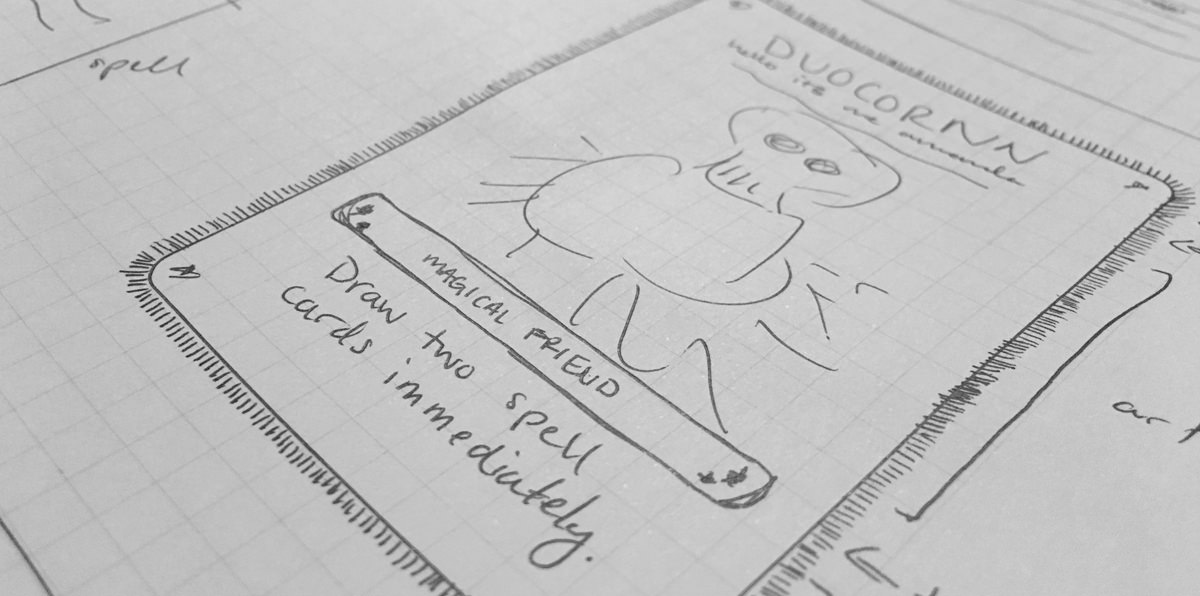 spell
DUOCORNN
hello its me amanda
MAGICAL FRIEND
Draw two spell
cards immediately.
art